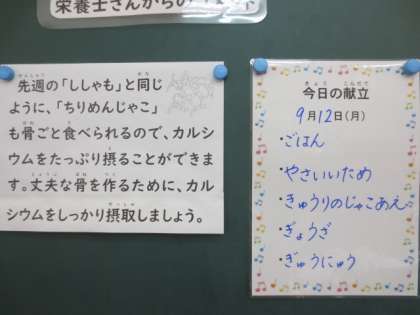 栄養士さんからの
先週の「ししゃも」と同じ
ように、「ちりめんじゃこ」
も骨ごと食べられるので、カルシ
ウムをたっぷり摂ることができま
す。丈夫な骨を作るために、カル
シウムをしっかり摂取しましょう。
今日の献立
9月12日(月)
・ごはん
・やさいいため
・きゅうりのじゃこあえ
・ぎょうざ
・ぎゅうにゅう